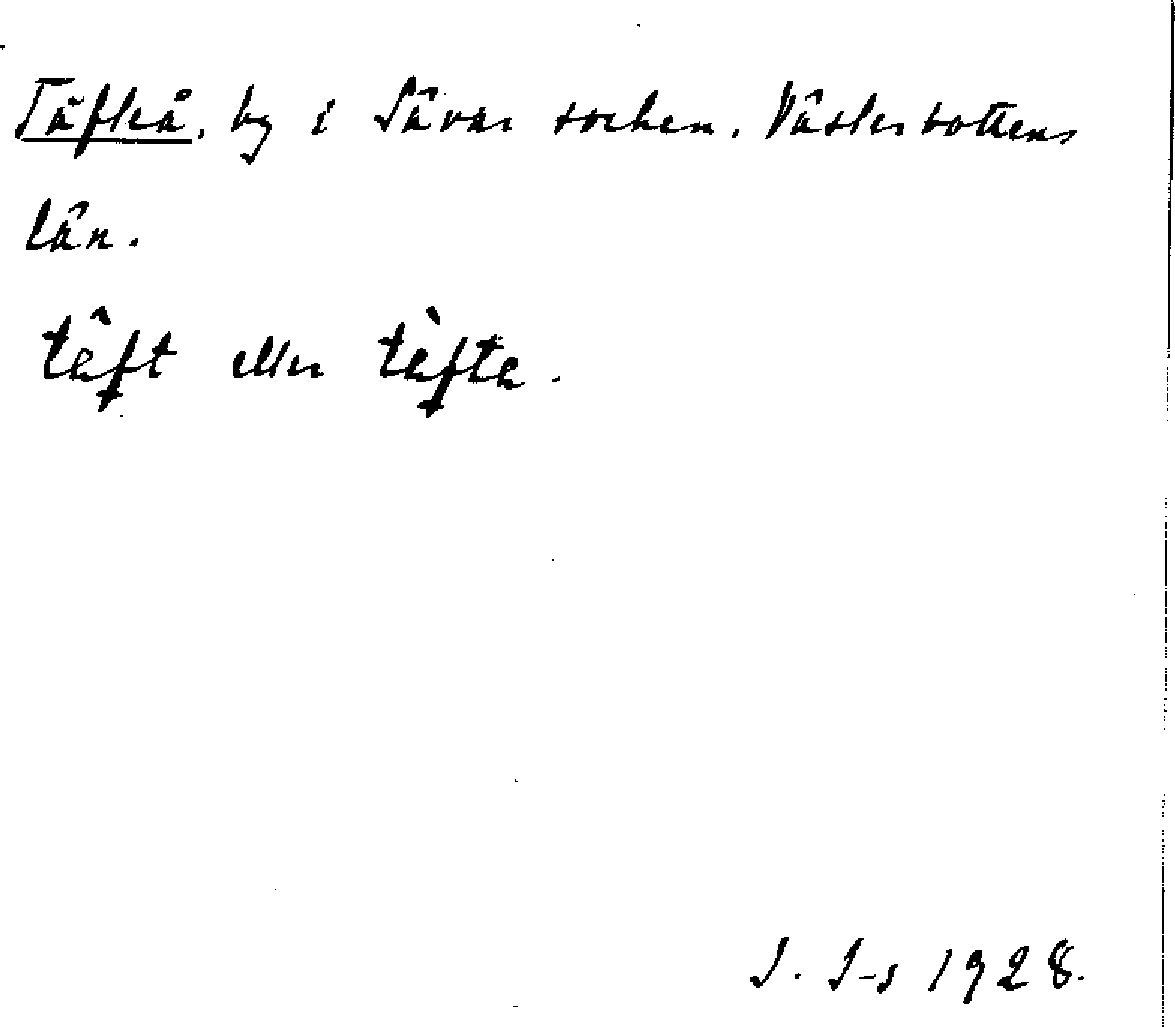 Täfteå, by i Sävar socken, Västerbottens
län.
têft eller tèfte.
J. I-s 1928.